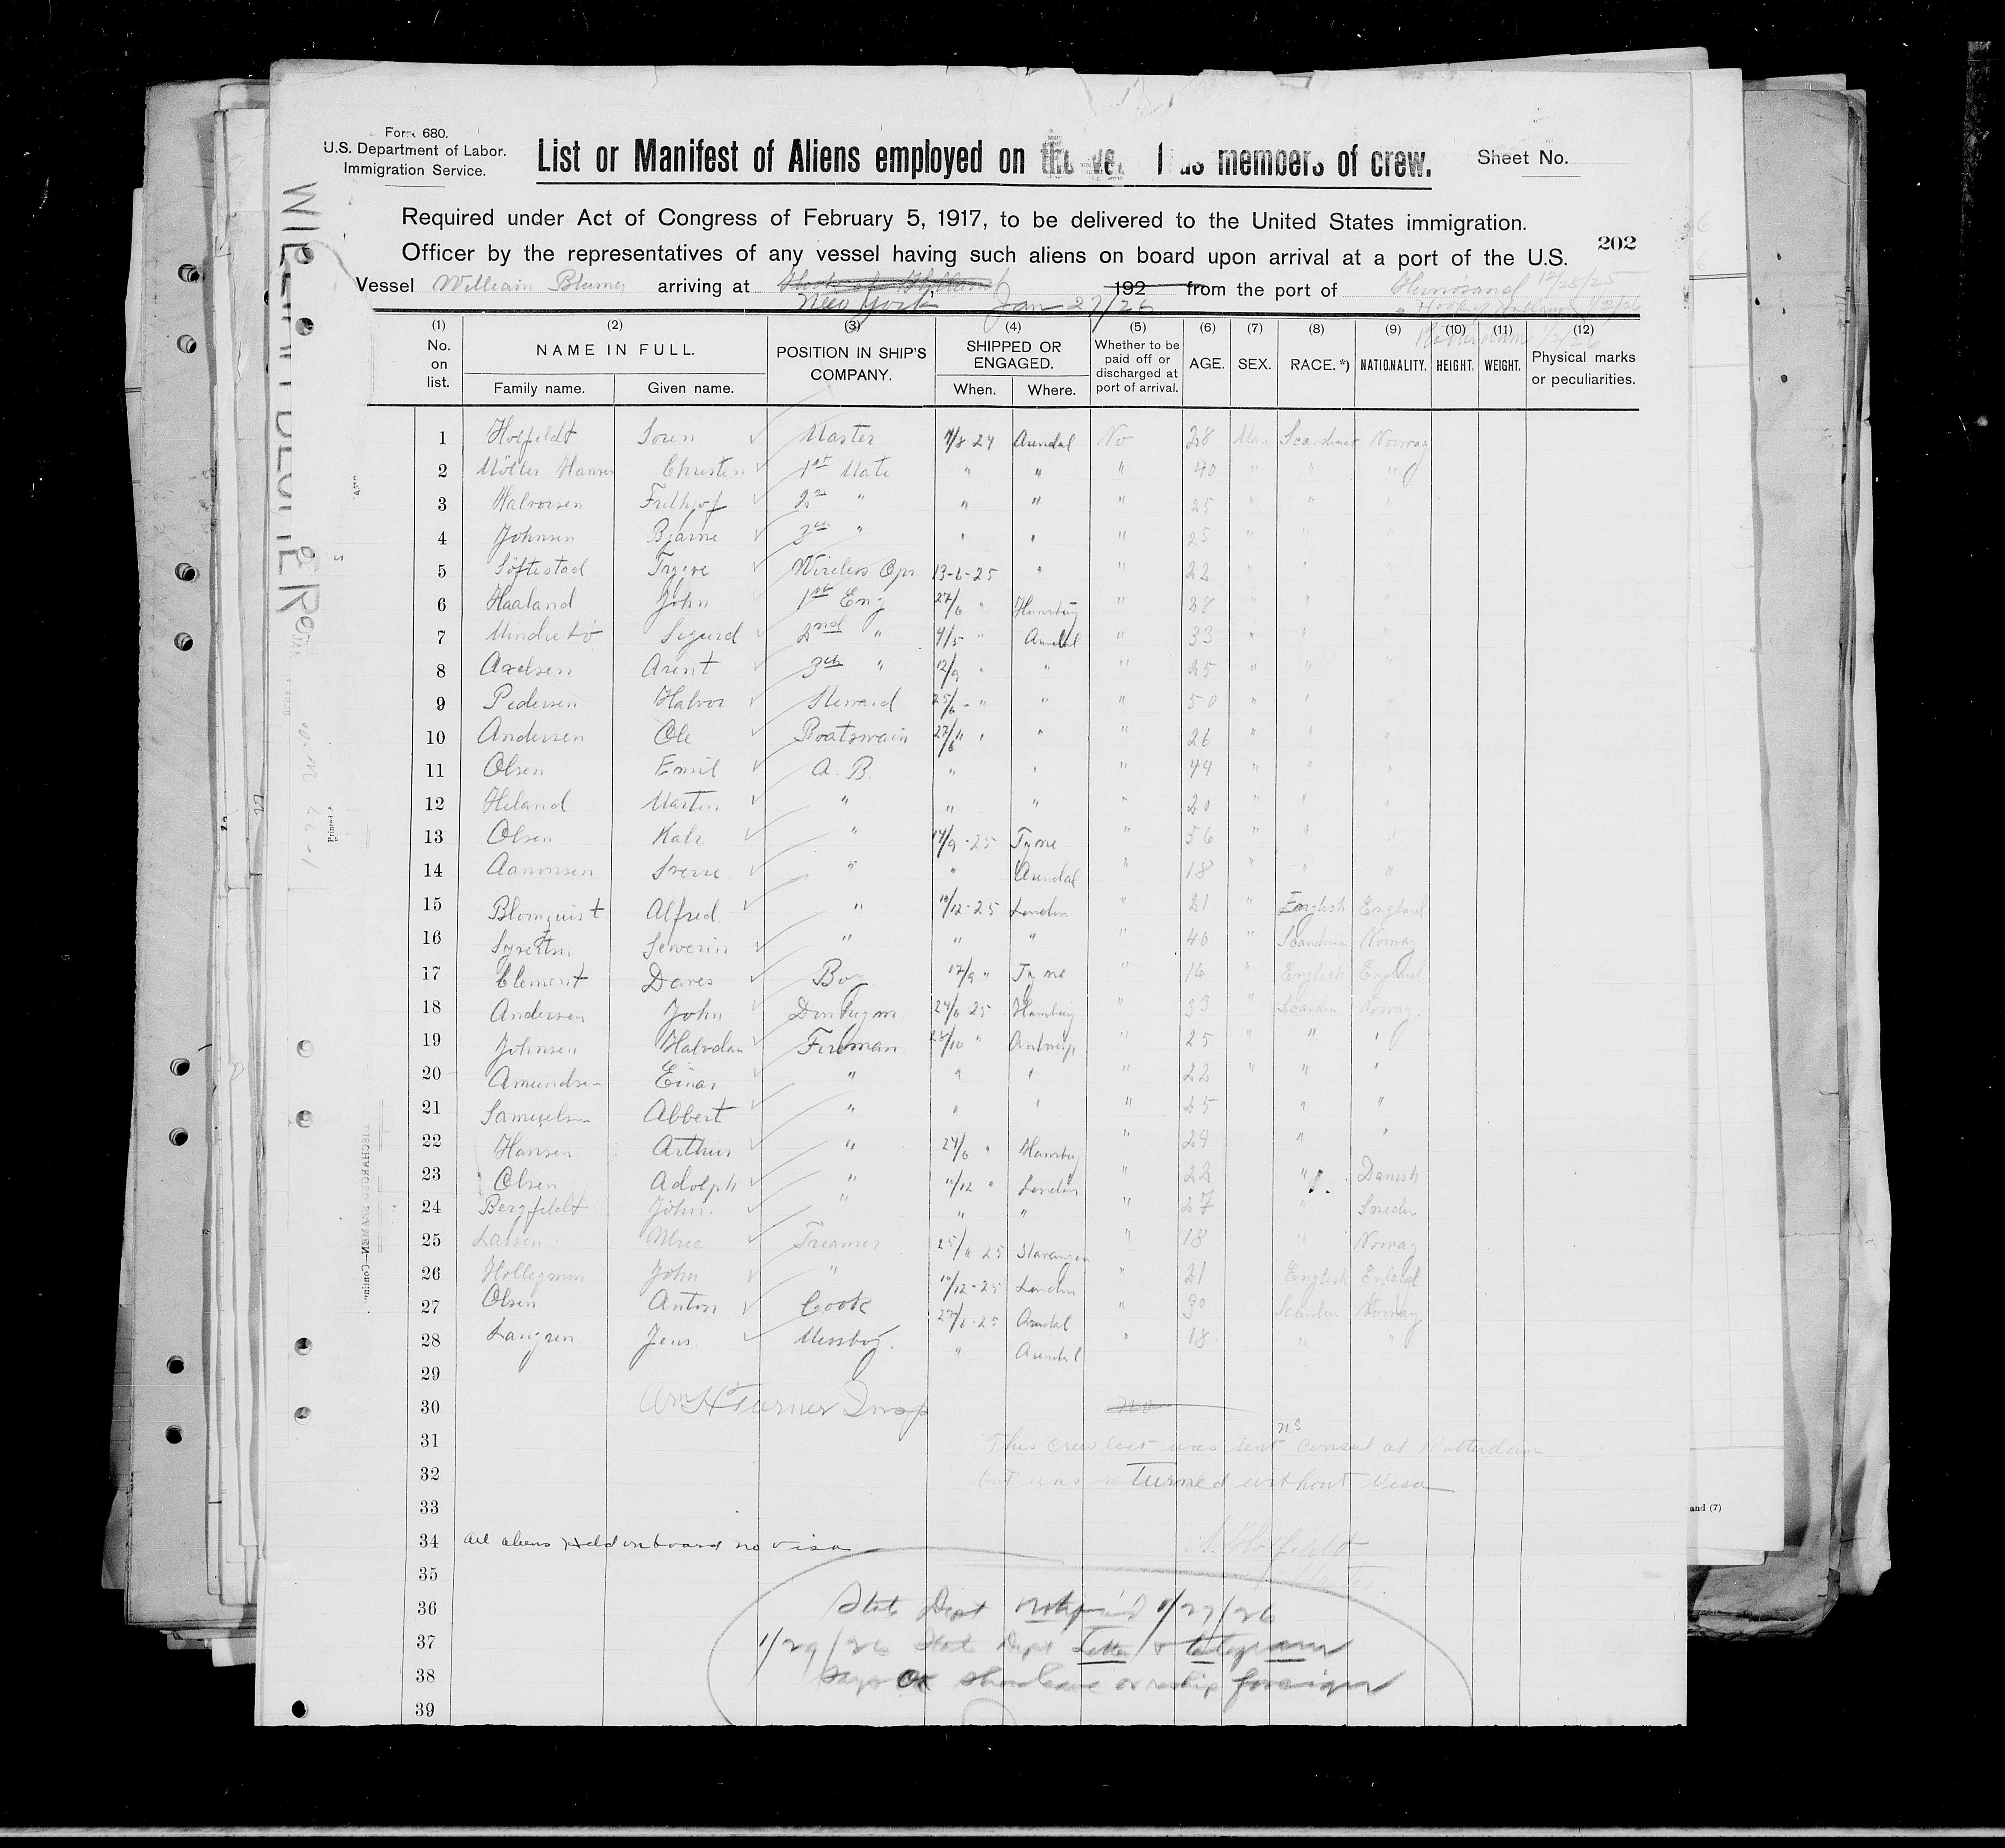 Form 680.
U.S. Department of Labor.
Immigration Service.
List or Manifest of Aliens employed on the as members of crew.
Sheet No.
Required under Act of Congress of February 5, 1917, to be delivered to the United States immigration.
Officer by the representatives of any vessel having such aliens on board upon arrival at a port of the U.S.
202
Vessel William Blumer arriving at Hook of Holland 192 from the port of 12/25/25
New York Jan 27/26 Hook of Holland 1/2/26
Rotterdam
(1) (2) (3) (4) (5) (6) (7) (8) (9) (10) (11) (12)
No. on list. NAME IN FULL. POSITION IN SHIP'S COMPANY. SHIPPED OR ENGAGED. Whether to be paid off or discharged at port of arrival. AGE. SEX. RACE.*) NATIONALITY. HEIGHT. WEIGHT. Physical marks or peculiarities.
Family name. Given name. When. Where.
1 Hoffeldt Soren Master 7/8 24 Arendal No 28 Man Scandinav Norway
2 Möller Hansen Christen 1st Mate " " " 40 " " "
3 Halvorsen Frithjof 2nd " " " " 25 " " "
4 Johnsen Bjarne 3rd " " " " 25 " " "
5 Söftestad Trygve Wireless Opr 13-6-25 " " 22 " " "
6 Haaland John 1st Eng 27/6 " Hamburg " 28 " " "
7 Sigurd 2nd " 4/5 " Arendal " 33 " " "
8 Axelsen Arent 3rd " 12/9 " " " 25 " " "
9 Pedersen Halvor Steward 25/6 - " " " 50 " " "
10 Andersen Ole Boatswain 27/6 " " " 26 " " "
11 Olsen Emil A.B. " " " 44 " " "
12 Heland Martin " " " " 20 " " "
13 Olsen " 17/9-25 Tyne " 56 " " "
14 Aanonsen Sverre " " Arendal " 18 " " "
15 Blomquist Alfred " 10/12-25 London " 21 " English England
16 Severin " " " " 40 " Scandina Norway
17 Clement Daves Boy 17/9 " Tyne " 16 " English England
18 Andersen John Donkeym. 24/6 25 Hamburg " 33 " Scandin Norway.
19 Johnsen Halvdan Fireman 28/10 " Antwerp " 25 " " "
20 Amundsen Einar " " " " 22 " " "
21 Samuelsen Abbert " " " " 25 " "
22 Hansen Arthur " 24/6 " Hamburg " 24 " "
23 Olsen Adolph " 10/12 " London " 22 " Danish
24 Bergfeldt John. " " " " 27 " Sweden
25 Larsen Treamer 25/6 25 Stavanger " 18 " Norway
26 John " 10/12-25 London " 21 English England
27 Olsen Anton Cook 27/6-25 Arendal " 30 Scandin Norway
28 Jens Messboy. " Arendal " 18 " "
29
30 Wm H Turner Insp no
31 This crew list was sent U.S consul at Rotterdam
32 but was returned without visa
33
34 all aliens held on board no visa S. Hoffeldt
35 Master.
36 State Dept notified 1/27/26
37 1/29/26 State Dept Letter & telegram
38 says OK shore leave or reship foreign
39
and (7)